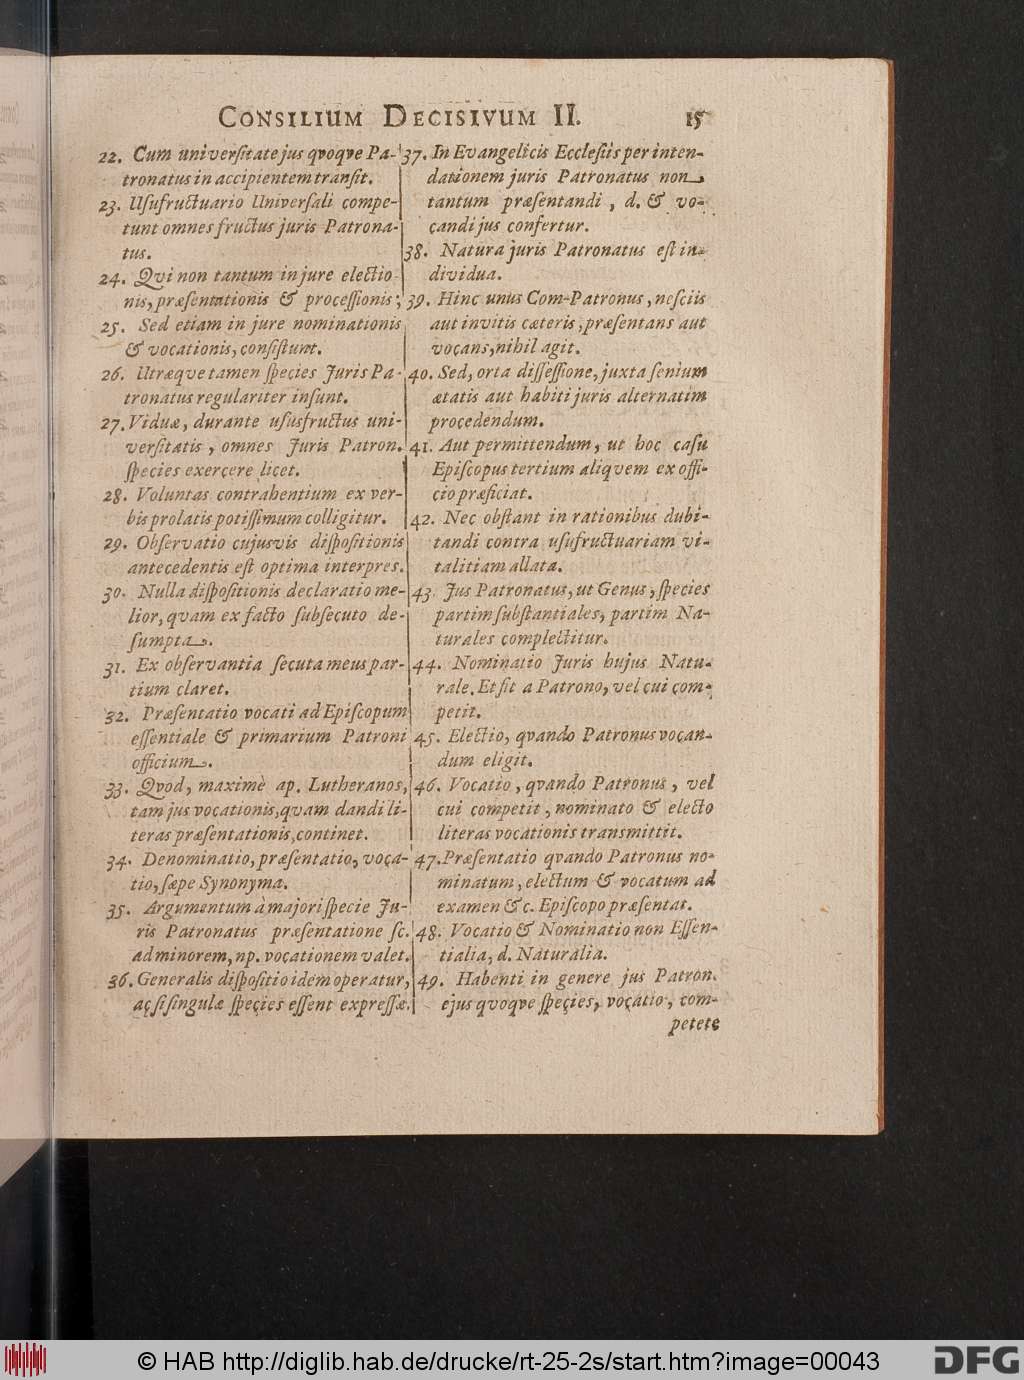 CONSILIUM DECISIVUM II. 15
22. Cum universitate jus qvoqve Pa-
tronatus in accipientem transit.
23. Usufructuario Universali compe-
tunt omnes fructus juris Patrona-
tus.
24. Qvi non tantum in jure electio
nis, præsentationis & processionis:
25. Sed etiam in jure nominationis
& vocationis, consistunt.
26. Utræqve tamen species Juris Pa-
tronatus regulariter insunt.
27. Viduæ, durante ususfructus uni-
versitatis, omnes Juris Patron.
species exercere licet.
28. Voluntas contrahentium ex ver-
bis prolatis potissimum colligitur.
29. Observatio cujusvis dispositionis
antecedentis est optima interpres.
30. Nulla dispositionis declaratio me-
lior, qvam ex facto subsecuto de-
sumpta.
31. Ex observantia secuta meus par-
tium claret.
32. Præsentatio vocati ad Episcopum
essentiale & primarium Patroni
officium.
33. Qvod, maximè ap. Lutheranos,
tam jus vocationis, qvam dandi li-
teras præsentationis, continet.
34. Denominatio, præsentatio, voca-
tio, sæpe Synonyma.
35. Argumentum à majori specie Ju-
ris Patronatus præsentatione sc.
ad minorem, np. vocationem valet.
36. Generalis dispositio idem operatur,
ac si singulæ species essent expressæ.
37. In Evangelicis Ecclesiis per inten-
dationem juris Patronatus non
tantum præsentandi, d. & vo-
candi jus confertur.
38. Natura juris Patronatus est in-
dividua.
39. Hinc unus Com-Patronus, nesciis
aut invitis cæteris, præsentans aut
vocans, nihil agit.
40. Sed, orta dissessione, juxta senium
ætatis aut habiti juris alternatim
procedendum.
41. Aut permittendum, ut hoc casu
Episcopus tertium aliqvem ex offi-
cio præficiat.
42. Nec obstant in rationibus dubi-
tandi contra usufructuariam vi-
talitiam allata.
43. Jus Patronatus, ut Genus, species
partim substantiales, partim Na-
turales complectitur.
44. Nominatio Juris hujus Natu-
rale. Et fit a Patrono, vel cui com-
petit.
45. Electio, qvando Patronus vocan-
dum eligit.
46. Vocatio, qvando Patronus, vel
cui competit, nominato & electo
literas vocationis transmittit.
47. Præsentatio qvando Patronus no-
minatum, electum & vocatum ad
examen &c. Episcopo præsentat.
48. Vocatio & Nominatio non Essen-
tialia, d. Naturalia.
49. Habenti in genere jus Patron.
ejus qvoqve species, vocatio, com-
petete
© HAB http://diglib.hab.de/drucke/rt-25-2s/start.htm?image=00043
DFG